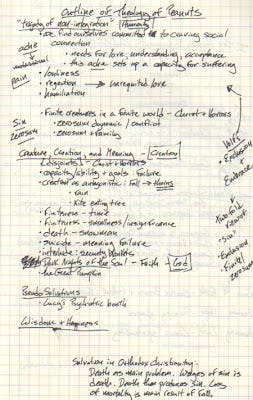 Outline of Theology of Peanuts
"tragedy of non-integration" Humans
• we find ourselves committed to craving social
connection
ache
• needs for love, understanding, acceptance
• this ache sets up a capacity for suffering
Pain
• loneliness
• rejection → unrequited love
• humiliation
• Finite creatures in a finite world - Christ + Horrors
Sin
zerosum
• zerosum dynamic / conflict
• zerosum + family
Creature, Creation, and Meaning - Creation
(disjointed) - Christ + Horrors
• capacity/ability + goals: failure
• creation as antagonistic: Fall → Horrors
• rain
• Kite eating tree
• finiteness - time
• finiteness - smallness/insignificance
• death - snowman
• suicide - meaning failure
• interlude: security blankets
Dark Nights of the Soul - Faith → God
the Great Pumpkin
Pseudo Solutions
• Lucy's Psychiatric booth
Wisdom + Happiness
Volf's
• Exclusion
+
Embrace
Twofold
view of
"Sin"
• Exclusion
• Finite/
zerosum
Salvation in Orthodox Christianity:
Death as main problem. Wages of sin is
death. Death then produces sin. Loss
of mortality is main result of Fall.